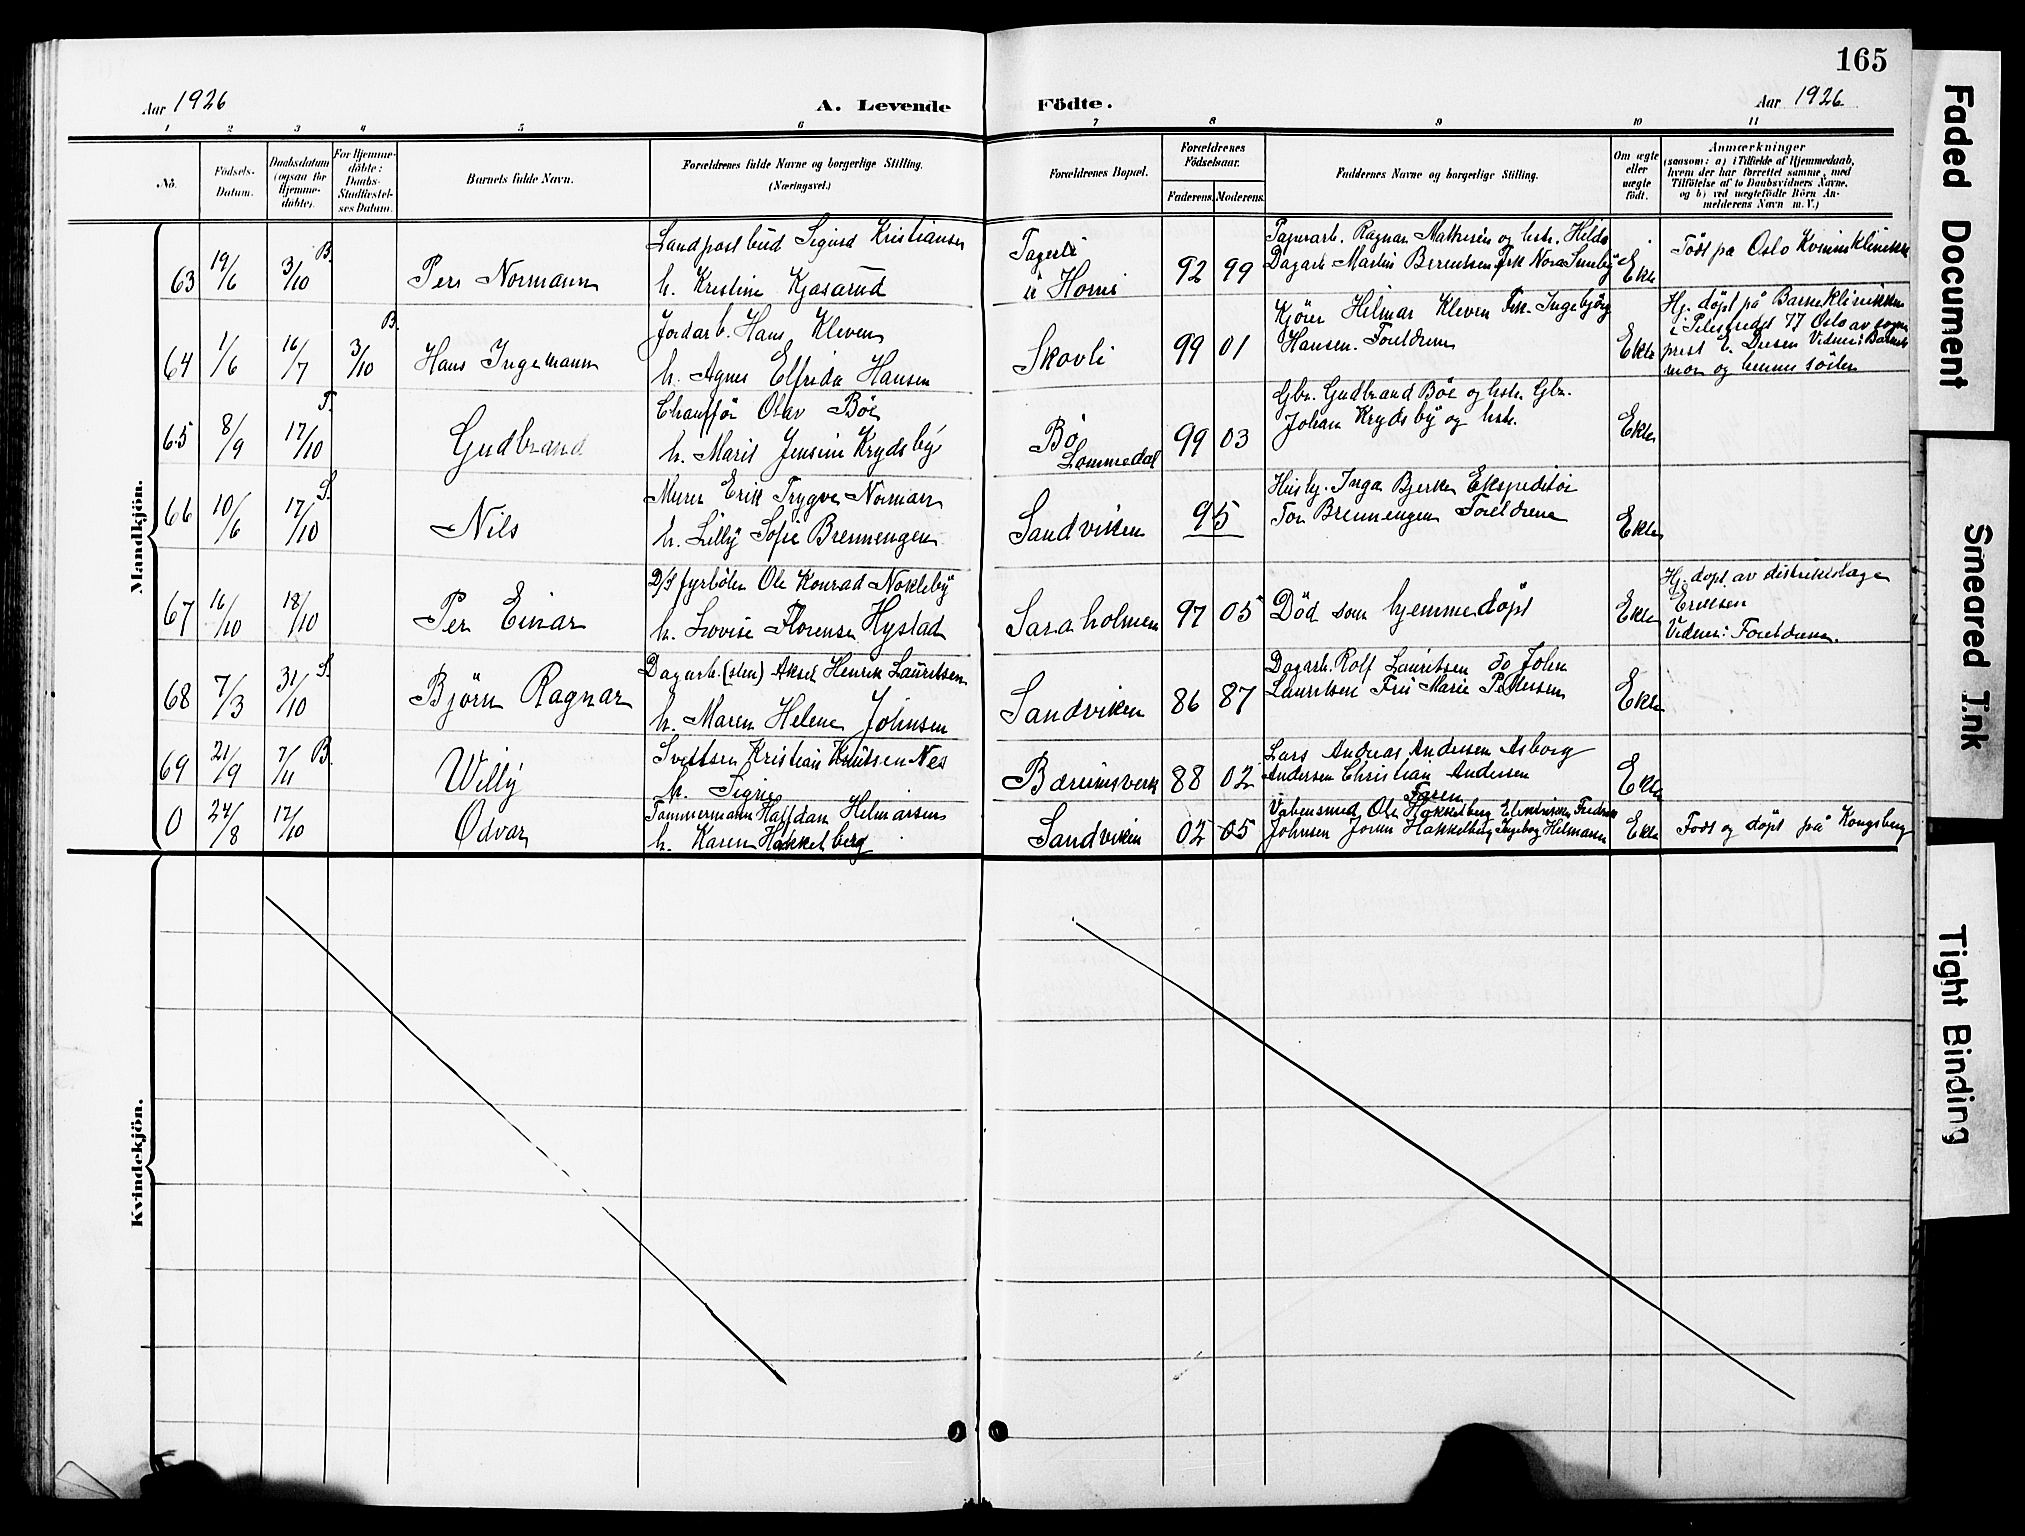 165
Aar 1926
A. Levende
Födte.
Aar 1926
1 2 3 4 5 6 7 8 9 10 11
No.
Födsels-
Datum.
Daabsdatum
(ogsaa for
Hjemme-
døbte).
For Hjemme-
døbte:
Daabs-
Stadfæstel-
ses Datum.
Barnets fulde Navn.
Forældrenes fulde Navne og borgerlige Stilling.
(Næringsvei.)
Forældrenes Bopæl.
Forældrenes
Födselsaar.
Faderens. Moderens.
Faddernes Navne og borgerlige Stilling.
Om ægte
eller
uægte
født.
Anmærkninger
(saasom: a) i Tilfælde af Hjemmedaab,
hvem der har forrettet samme, med
Tilföielse af to Daabsvidners Navne,
og b) ved uægtefödte Börn An-
melderens Navn m. V.)
Mandkjön.
63 19/6 3/10 B.
Per Normann
Landpostbud Sigurd Kristiansen
h. Kristine Kjøsarud
92 99
Papirarb. Ragnar Mathisen og hstr. Hilda
Dagarb Martin Berentsen Frk Nora Sunby
Ekte
Født på Oslo Kvinneklinikk
64 1/6 16/7 3/10 B.
Hans Ingemann
Jordarb. Hans Kleven
h. Agnes Elfrida Hansen
Skovli
99 01
Kjører Hilmar Kleven Frk. Ingebjørg
Hansen. Foreldrene
Ekte
Hj. døpt på Barneklinikken
i Pilestredet 77 Oslo av sogne
prest E. Diesen Vidner: Barnets
mor og hennes søster
65 8/9 17/10 T.
Gudbrand
Chauffør Olav Bøe
h. Marit Jensine Krydsby
Bø
Lommedal
99 03
Gbr. Gudbrand Bøe og hstr. Gbr.
Johan Krydsby og hstr.
Ekte
66 10/6 17/10 S.
Nils
Murer Erik Trygve Norman
h. Lilly Sofie Brennengen
Sandviken
95
Husby. Inga Bjerke Ekspeditør
Tor Brennengen Foreldrene
Ekte
67 16/10 18/10
Per Einar
D/S fyrbøter Ole Konrad Nokleby
h. Lovise Florense Hystad
Saraholmen
97 05
Død som hjemmedøpt
Ekte
Hj. døpt av distriktslæge
Eriksen
Vidner: Foreldrene.
68 7/3 31/10 S.
Bjørn Ragnar
Dagarb. (sten) Aksel Henrik Lauritsen
h. Maren Helene Johnsen
Sandviken
86 87
Dagarb. Rolf Lauritsen do John
Lauritsen Fru Marie Pettersen
Ekte
69 21/9 7/11 B.
Willy
Kristian Knutsen Nes
h. Signe
Bærumsverk
88 02
Lars Andreas Andersen Asborg
Andersen Christian Andersen
Faren
Ekte
0 24/8 17/10
Odvar
Tømmermann Halfdan Helmarsen
h. Karen Hakkelberg
Sandviken
02 05
Våbensmed Ole Hakkelberg Elektriker Fredrik
Johnsen Jorun Hakkelberg Ingeborg Hilmarsen
Ekte
Født og døpt på Kongsberg
Kvindekjön.
Faded Document
Smeared Ink
Tight Binding